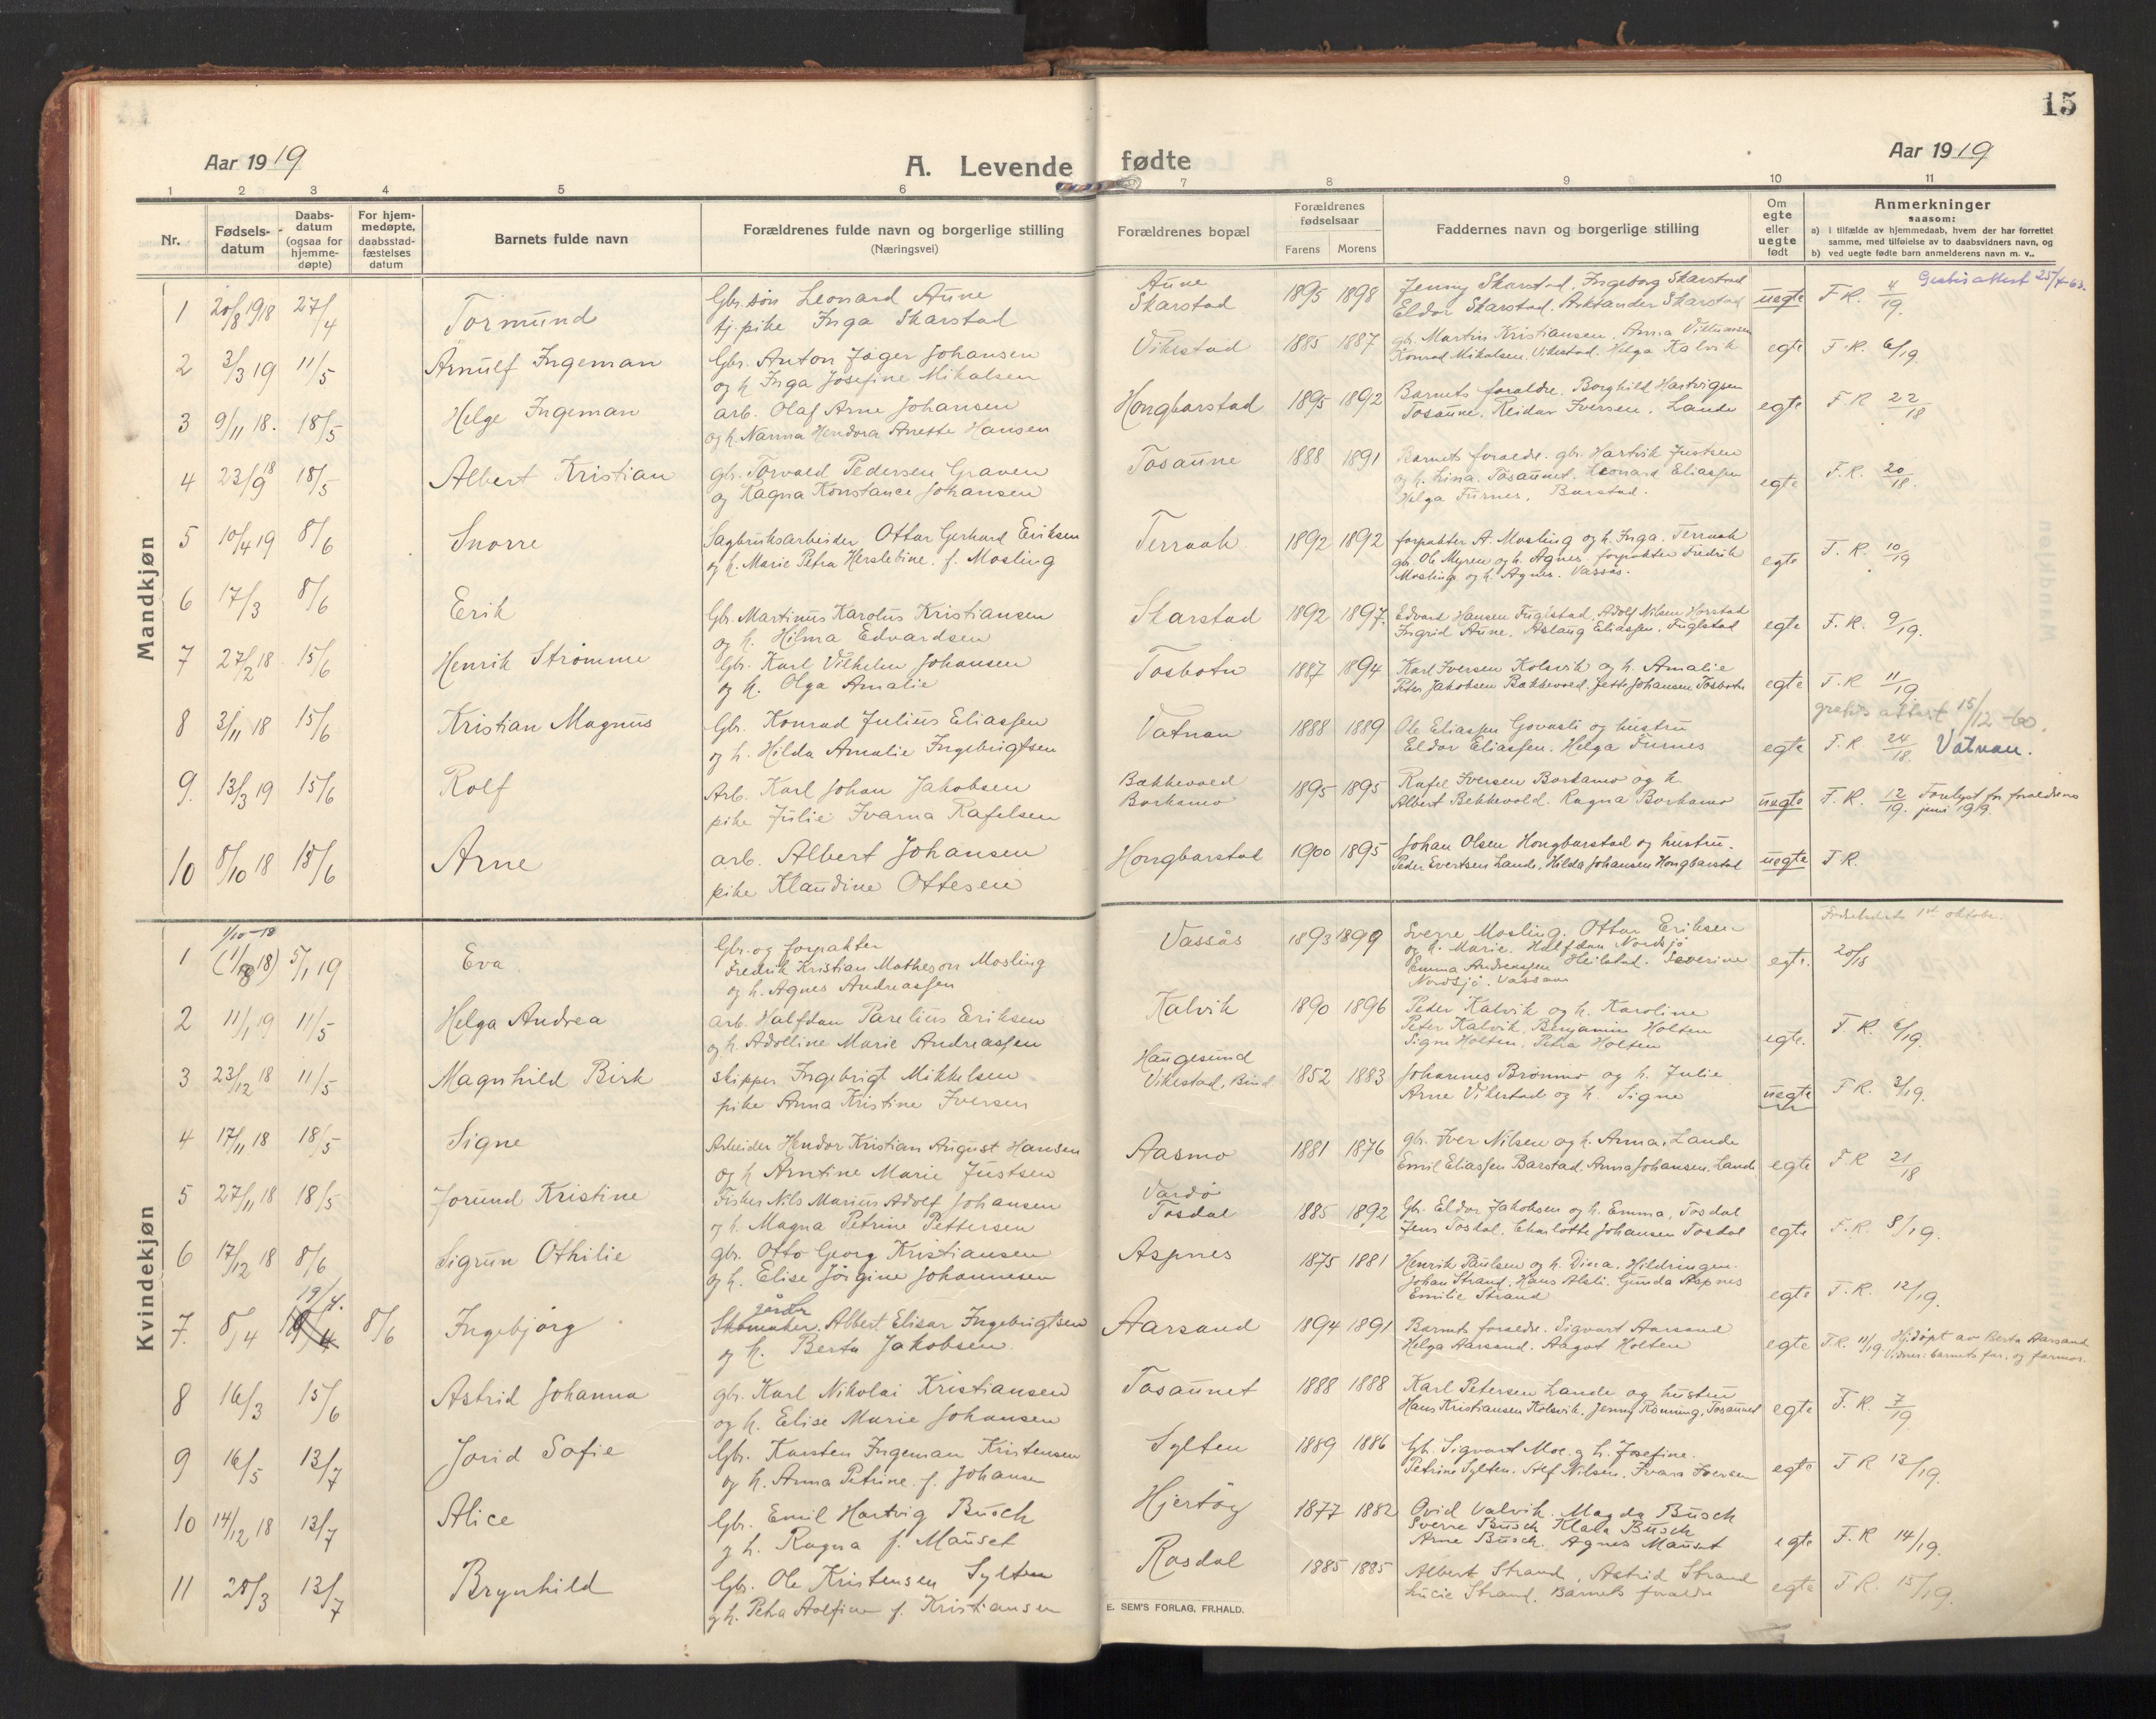 15
Aar 1919
A. Levende fødte
Aar 1919
1 2 3 4 5 6 7 8 9 10 11
Nr.
Fødsels-
datum
Daabs-
datum
(ogsaa for
hjemme-
døpte)
For hjem-
medøpte,
daabsstad-
fæstelses
datum
Barnets fulde navn
Forældrenes fulde navn og borgerlige stilling
(Næringsvei)
Forældrenes bopæl
Forældrenes
fødselsaar
Farens Morens
Faddernes navn og borgerlige stilling
Om
egte
eller
uegte
født
Anmerkninger
saasom:
a) i tilfælde av hjemmedaab, hvem der har forrettet
samme, med tilføielse av to daabsvidners navn, og
b) ved uegte fødte barn anmelderens navn m. v..
Mandkjøn
1 20/8 1918 27/4 Tormund
Gbr. søn Leonard Aune
tj. pike Inga Skarstad
Aune
Skarstad
1895 1898
Jenny Skarstad, Ingeborg Skarstad
Eldor Skarstad. Skarstad
uegte F.R. 4/19. Gratis attest 25/4-63.
2 3/3 19 11/5 Arnulf Ingeman
Gbr. Anton Jäger Johansen
og h. Inga Josefine Mikalsen
Vikestad 1885 1887
gb. Martin Kristiansen. Anna
Konrad Mikalsen. Vikestad. Helga Kalvik
egte F.R. 6/19.
3 9/11 18. 18/5 Helge Ingeman
arb. Olaf Arne Johansen
og h. Nanna Hendora Anette Hansen
Hongbarstad 1895 1892
Barnets foreldre. Borghild Hartvigsen
Tosaune. Reidar Iversen. Lande
egte F.R 22/18
4 23/9 18 18/5 Albert Kristian
gbr. Torvald Pedersen Graven
og Ragna Konstance Johansen
Tosaune 1888 1891
Barnets foreldre. gbr. Hartvik Justsen
og h. Lina. Tosaunet. Leonard Eliassen
Helga Furnes, Barstad.
egte F.R. 20/18.
5 10/4 19 8/6 Snorre
Sagbruksarbeider Ottar Gerhard Eriksen
og h. Marie Petra Herslebine. f. Mosling
Terraak 1892 1892
forpakter A. Mosling og h. Inga. Terraak
gb. Ole Myren og h. Agnes, forpakter Fredrik
Mosling og h. Agnes. Vassås.
egte F.R. 10/19
6 17/3 8/6 Erik
Gbr. Martinus Karolus Kristiansen
og h. Hilma Edvardsen
Skarstad 1892 1897.
Edvart Hansen Fuglstad, Adolf Nilsen Horstad
Ingrid Aune. Aslaug Eliassen. Fuglstad
egte F.R. 9/19.
7 27/2 18 15/6 Henrik Strømme
Gbr. Karl Vilhelm Johansen
og h. Olga Amalie
Tosbotn 1887 1894
Karl Iversen Kolsvik og h. Amalie
Peter Jakobsen Bækkevold. Jette Johansen Tosbotn
egte F.R 11/19.
8 3/11 18 15/6 Kristian Magnus
Gbr. Konrad Julius Eliassen
og h. Hilda Amalie Ingebrigtsen
Vatnan 1888 1889
Ole Eliassen Govasli og hustru
Eldor Eliassen. Helga Furnes
egte F.R. 24/18. Vatnan.
gratis attest 15/12-60.
9. 13/3 19 15/6 Rolf
Arb. Karl Johan Jakobsen
pike Julie Ivarna Rafelsen
Bækkevold
Borkamo
1895 1895
Rafel Iversen Borkamo og h.
Albert Bekkevold. Ragna Borkamo
uegte F.R. 12/19. Forelyst for foreldrene
juni 1919.
10 8/10 18 15/6 Arne
arb. Albert Johansen
pike Klaudine Ottesen
Hongbarstad 1900 1895
Johan Olsen Hongbarstad og hustru.
Peder Evertsen Lande, Hilda Johansen Hongbarstad
uegte F.R.
Kvindekjøn
1 1/10-18 (1/8 18) 5/1 19 Eva
Gbr. og forpakter
Fredrik Kristian Matheson Mosling
og h. Agnes Andreassen
Vassås 1893 1899
Sverre Mosling. Ottar Eriksen
og h. Marie. Halfdan Nordsjø
Emma Andreassen Heilstad. Severine
Nordsjø. Vassaas
egte. 20/18
1ste oktober.
2 11/1 19 11/5 Helga Andrea
arb. Halfdan Parelius Eriksen
og h. Adolline Marie Andreassen
Kalvik 1890 1896
Peter Kalvik og h. Karoline
Peter Kalvik. Benjamin Holten
Signe Holten, Petra Holten
egte. F.R. 2/19.
3 23/12 18 11/5 Magnhild Birk
skipper Ingebrigt Mikkelsen
pike Anna Kristine Iversen
Haugesund
Vikestad, Bind
1852 1883
Johannes Brønmo og h. Julie
Arne Vikestad og h. Signe
uegte F.R. 3/19.
4 17/11 18 18/5 Signe
Arbeider Hendor Kristian August Hansen
og h Arntine Marie Justsen
Aasmo 1881 1876
gb. Iver Nilsen og h. Anna. Lande
Emil Eliassen Barstad. Anna Johansen. Lande
egte F.R 21/18
5 27/11 18 18/5 Jorund Kristine
Fisker Nils Marius Adolf Johansen
og h. Magna Petrine Pettersen
Vardø
Tosdal
1885 1892
Gb. Eldor Jakobsen og h. Emma, Tosdal
Jens Tosdal. Charlotte Johansen Tosdal
egte F.R. 8/19.
6 17/12 18 8/6 Sigrun Othilie
gbr. Otto Georg Kristiansen
og h. Elise Jörgine Johannesen
Aspnes 1875 1881
Henrik Paulsen og h. Dina. Hildringen.
Johan Strand. Hans Alsli. Gunda Aspnes
Emilie Strand
egte F.R. 12/19.
7. 8/4 19/4. 8/6 Ingebjørg
Skomaker. Albert Elisar Ingebrigtsen
og h. Berta Jakobsen
Aarsand 1894 1891
Barnets foreldre. Sigvart Aarsand
Helga Aarsand. Aagot Holten
egte F.R. 11/19. Hj.døpt av Berta Aarsand
Vidner: barnets far. og farmor.
8 16/3 15/6 Astrid Johanna
gbr. Karl Nikolai Kristiansen
og h. Elise Marie Johansen
Tosaunet 1888 1888
Karl Petersen Lande og hustru
Hans Kristiansen Kolsvik. Jenny Rönning, Tosaunet
egte F.R. 7/19
9 16/5 13/7 Jorid Sofie
Gbr. Karsten Ingeman Kristensen
og h. Anna Petrine f. Johansen
Sylten 1889 1886
Gb. Sigvart Moe og h. Josefine.
Petrine Sylten. Alf Nilsen. Ivara Iversen
egte F R 13/19.
10 14/12 18 13/7 Alice
Gbr. Emil Hartvig Busch
og h. Ragna f. Mauset
Hjertøy 1877 1882
Ovid Valvik. Magda Busch
Sverre Busch Klara Busch
Arne Busch. Agnes Mauset
egte F.R 14/19.
11 28/3 13/7 Brynhild
Gbr. Ole Kristensen Sylten
og h. Petra Adolfine f. Kristiansen
Rosdal 1885 1885
Albert Strand, Astrid Strand
Lucie Strand. Barnets foreldre
egte F.R. 15/19.
E. SEM'S FORLAG, FR.HALD.